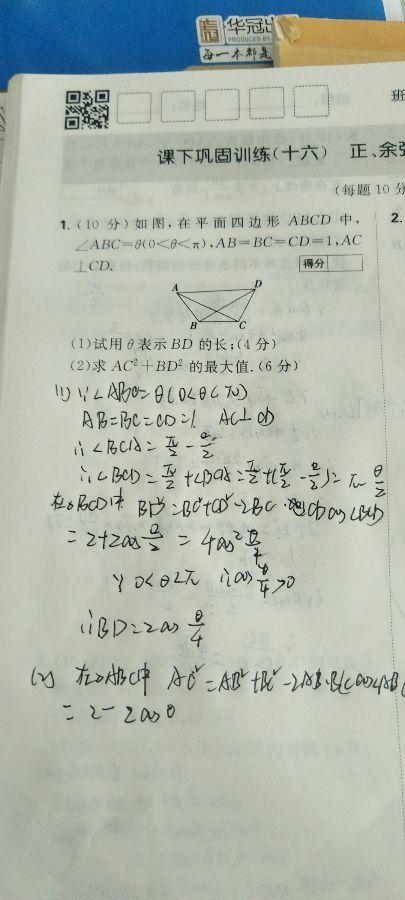 华冠出
PRODUCED BY
每一本都是
班
课下巩固训练(十六) 正、余弦
(每题10分
1.(10分)如图,在平面四边形ABCD中,
∠ABC=θ(0<θ<π),AB=BC=CD=1,AC
⊥CD.
得分
A
D
B
C
(1)试用θ表示BD的长;(4分)
(2)求AC²+BD²的最大值.(6分)
2.
(1) ∵∠ABC=θ(0<θ<π)
AB=BC=CD=1 AC⊥CD
∴∠BCA=π/2-θ/2
∴∠BCD=π/2+∠BCA=π/2+(π/2-θ/2)=π-θ/2
在△BCD中 BD²=BC²+CD²-2BC·CDcos∠BCD
=2+2cosθ/2=4cos²θ/4
∵0<θ<π ∴cosθ/4>0
∴BD=2cosθ/4
(2) 在△ABC中 AC²=AB²+BC²-2AB·BCcos∠ABC
=2-2cosθ